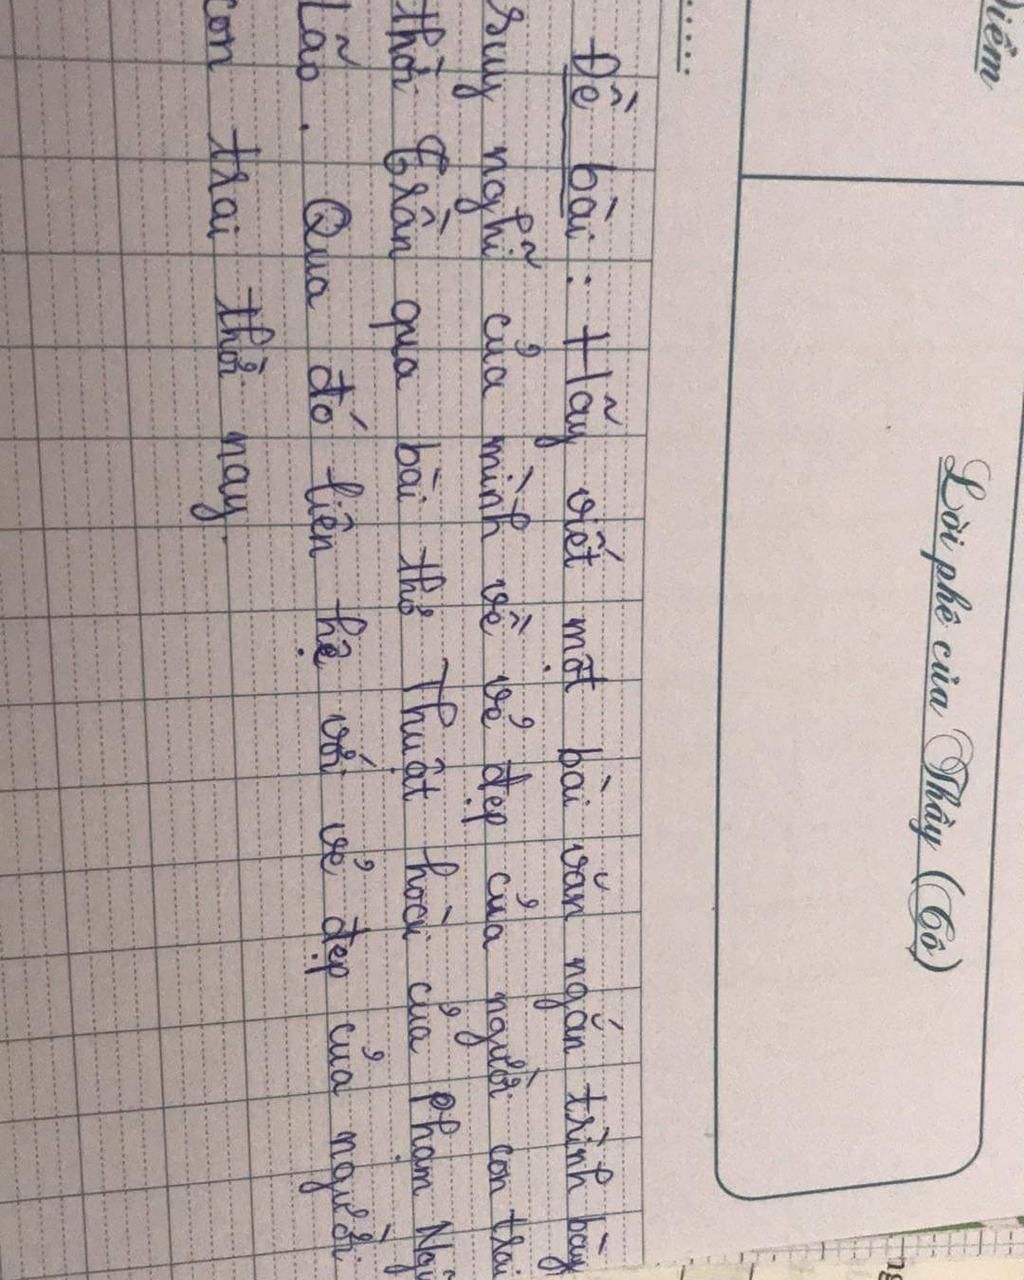 Điểm
Lời phê của Thầy (Cô)
......
Đề bài: Hãy viết một bài văn ngắn trình bày
suy nghĩ của mình về vẻ đẹp của người con trai
thời Trần qua bài thơ Thuật hoài của Phạm Ngũ
Lão. Qua đó liên hệ với vẻ đẹp của người
con trai thời nay.